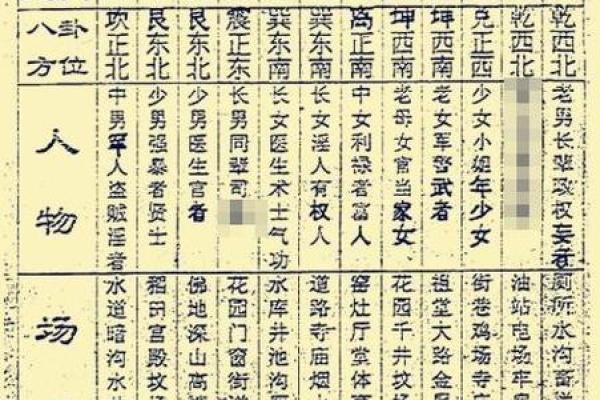 八卦
方位
坎正北
艮东北
艮东北
震正东
巽东南
巽东南
离正南
坤西南
坤西南
兑正西
乾西北
乾西北
人物
中男军人盗贼淫者
少男强暴者贤士
少男医生官者
长男同辈司
长女医生术士气功
长女淫人有权人
中女利禄者富人
老母女官当家女
老女军警武者
少女小姐年少女
老男长辈政权妄者
场
水道暗沟水
稻田宫殿坟
佛地深山高
花园门窗街道
水库井池沟
道路寺庙烟
窑灶厅堂体
花园千井坟
祖堂大路金
街巷鸡场寺
油站电场牢
厕所水沟畜